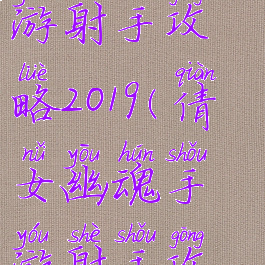 游射手攻
lüè qiàn
略2019(倩
nǚ yōu hún shǒu
女幽魂手
yóu shè shǒu gōng
游射手攻